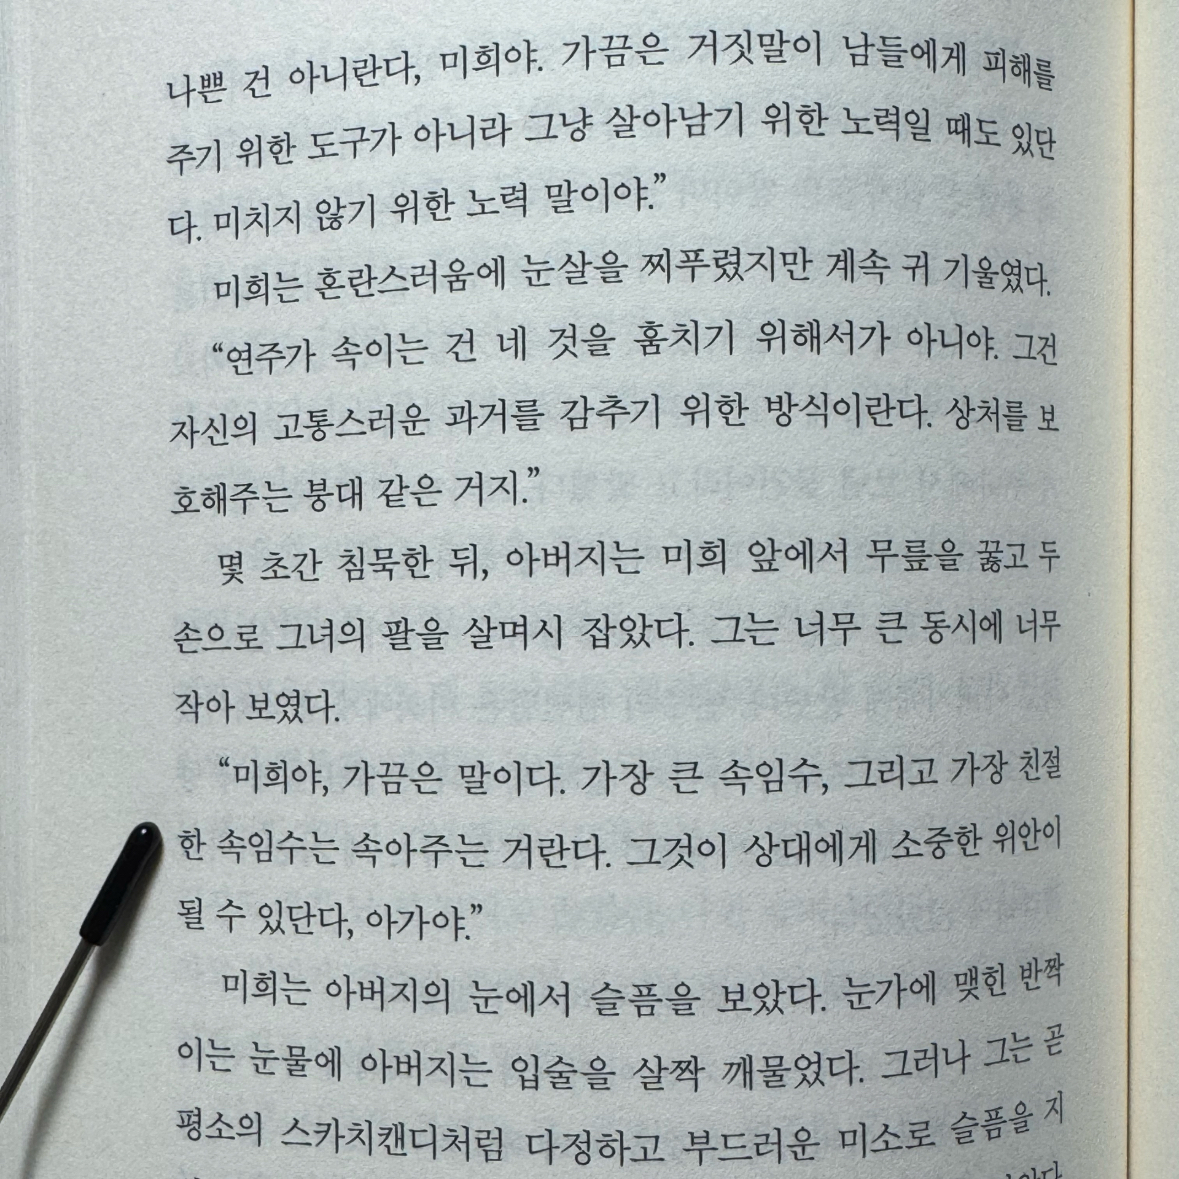 나쁜 건 아니란다, 미희야. 가끔은 거짓말이 남들에게 피해를
주기 위한 도구가 아니라 그냥 살아남기 위한 노력일 때도 있단
다. 미치지 않기 위한 노력 말이야.”
미희는 혼란스러움에 눈살을 찌푸렸지만 계속 귀 기울였다.
“연주가 속이는 건 네 것을 훔치기 위해서가 아니야. 그건
자신의 고통스러운 과거를 감추기 위한 방식이란다. 상처를 보
호해주는 붕대 같은 거지.”
몇 초간 침묵한 뒤, 아버지는 미희 앞에서 무릎을 꿇고 두
손으로 그녀의 팔을 살며시 잡았다. 그는 너무 큰 동시에 너무
작아 보였다.
“미희야, 가끔은 말이다. 가장 큰 속임수, 그리고 가장 친절
한 속임수는 속아주는 거란다. 그것이 상대에게 소중한 위안이
될 수 있단다, 아가야.”
미희는 아버지의 눈에서 슬픔을 보았다. 눈가에 맺힌 반짝
이는 눈물에 아버지는 입술을 살짝 깨물었다. 그러나 그는 곧
평소의 스카치캔디처럼 다정하고 부드러운 미소로 슬픔을 지